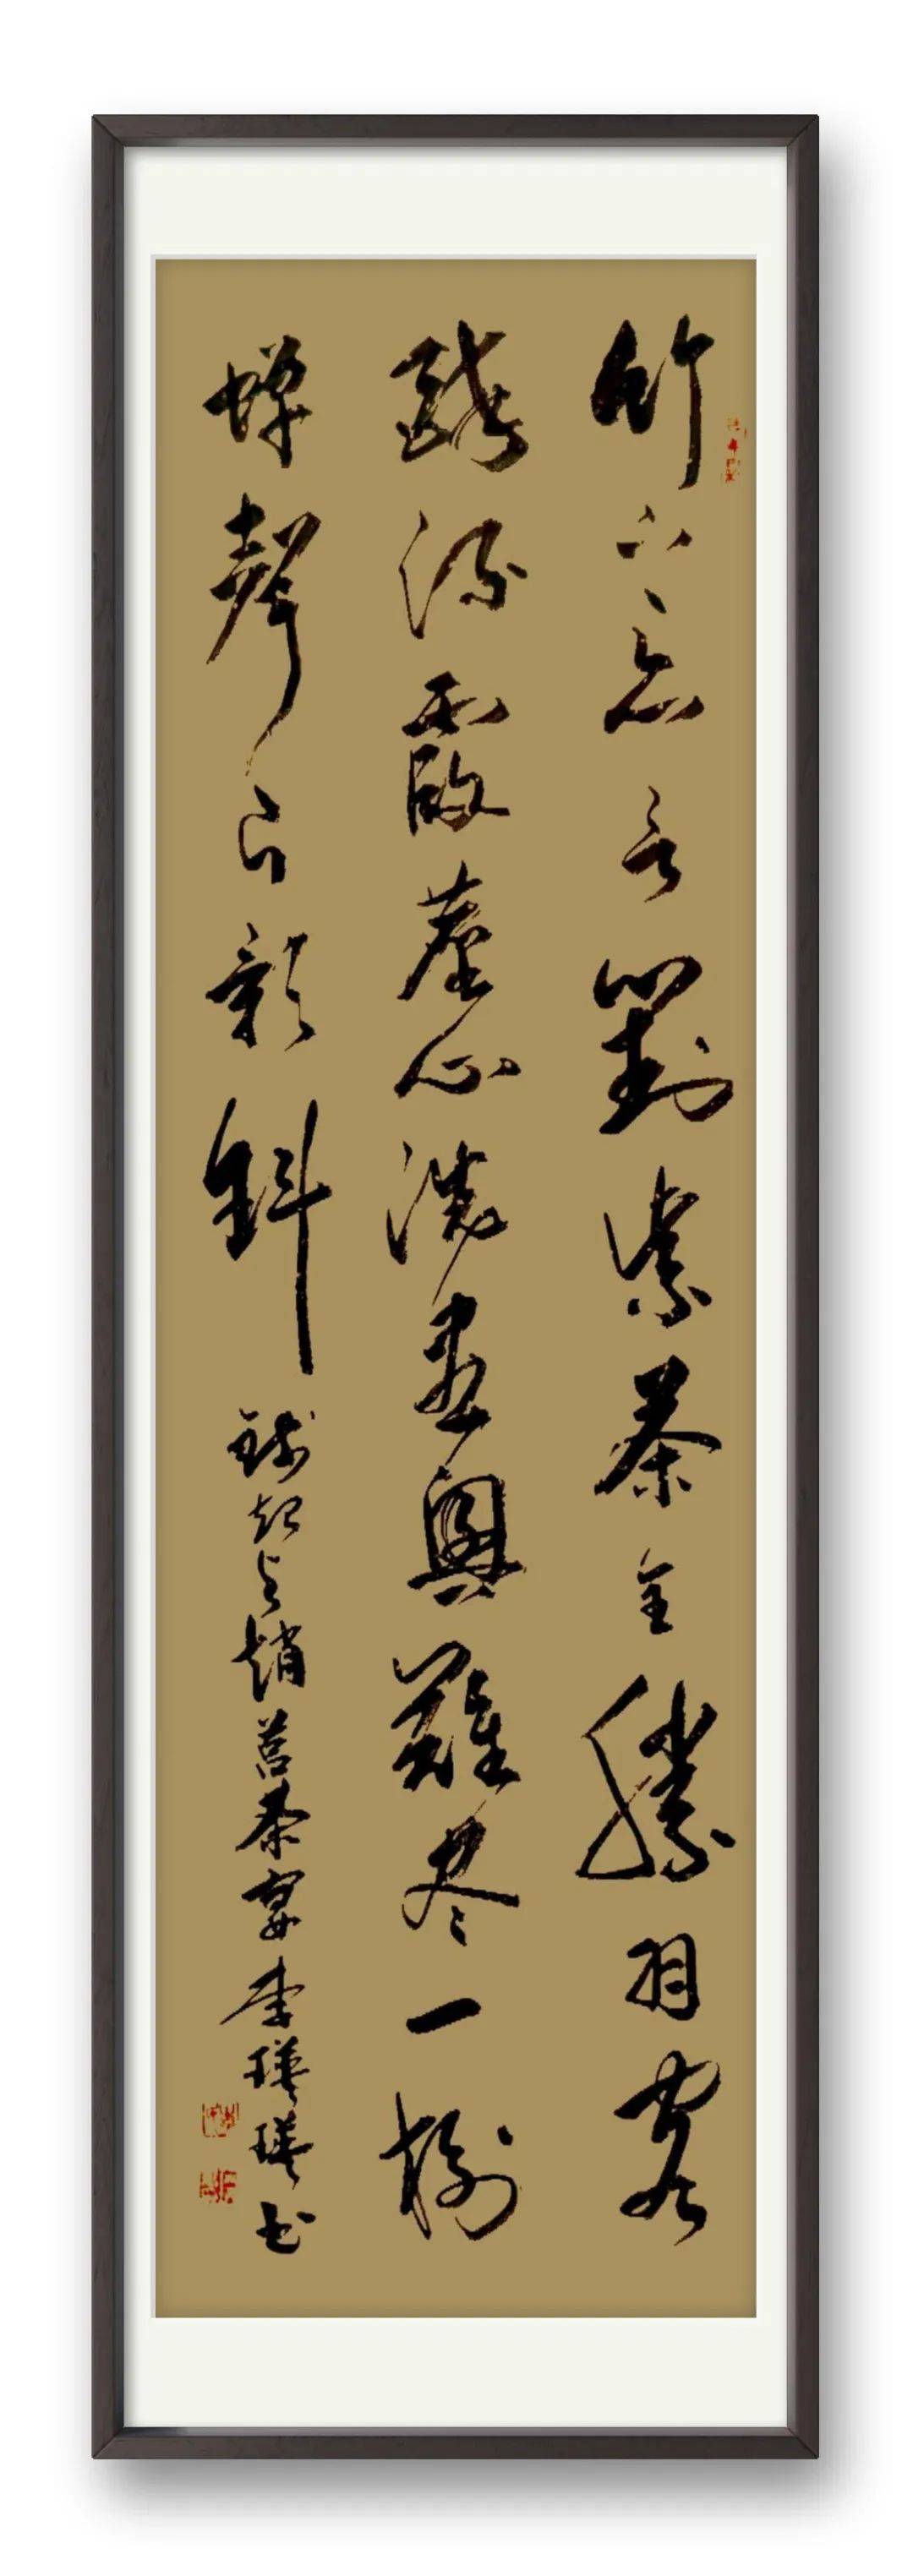 竹下忘言對紫茶全勝羽客
醉流霞塵心洗盡興難尽一樹
蟬聲片影斜
錢起與趙莒茶宴李瑛瑛书